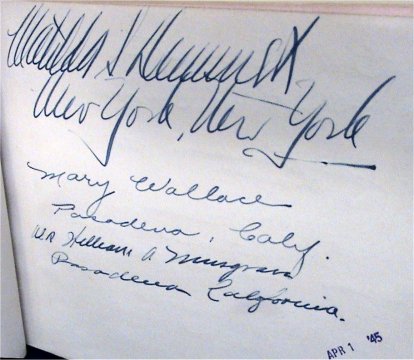 Matilda
New York, New York
Mary Wallace
Pasadena, Calif.
William A Musgrave
Pasadena California.
APR 1 '45